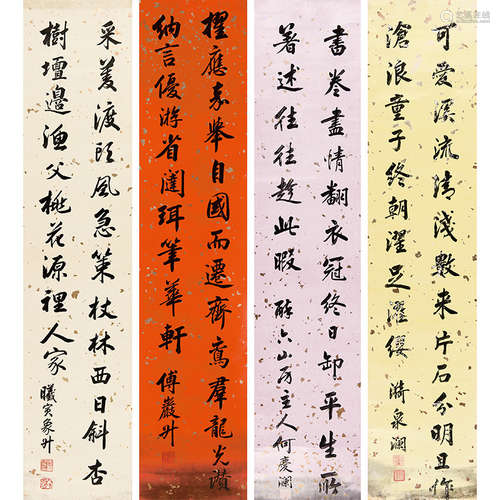 可愛溪流清淺數来片石分明且作
滄浪童子終朝濯足濯纓 漪泉澜
書巻盡情翻衣冠終日卸平生所
著述往往趁此暇 六山房主人何慶澜
擢應嘉舉自國而遷齊鴛群龍光讚
納言優游省闥珥筆華軒 傅巖升
采菱渡头風急策杖林西日斜杏
樹壇邊漁父桃花源裡人家 曦寅象升